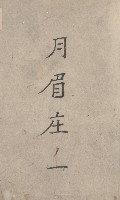 月眉庄ノ一